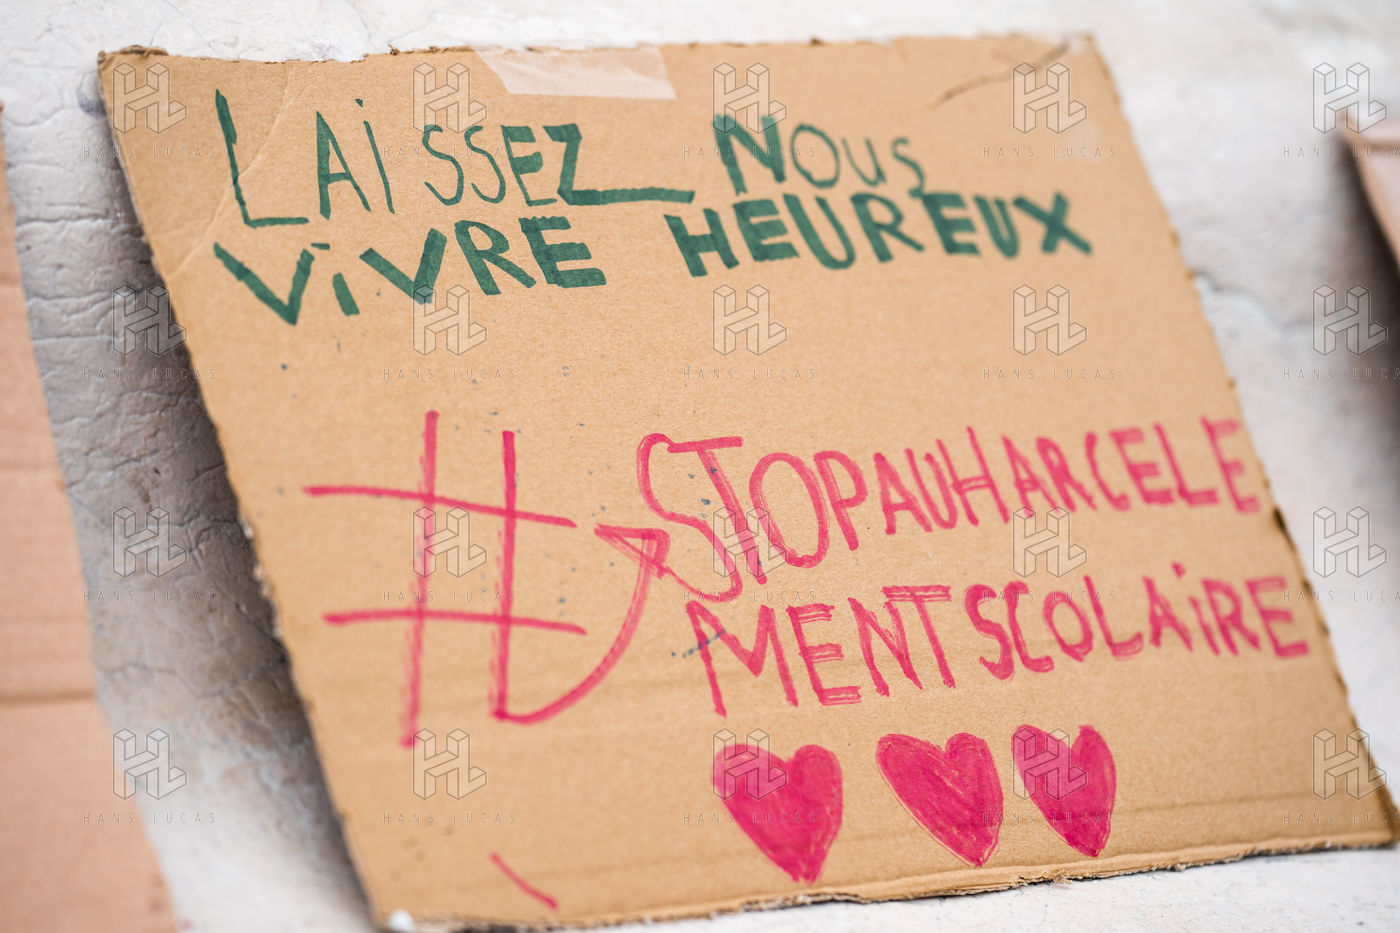 LAiSSEZ NOUS
ViVRE HEUREUX
#STOPAUHARCELE
MENTSCOLAiRE
HANS LUCAS